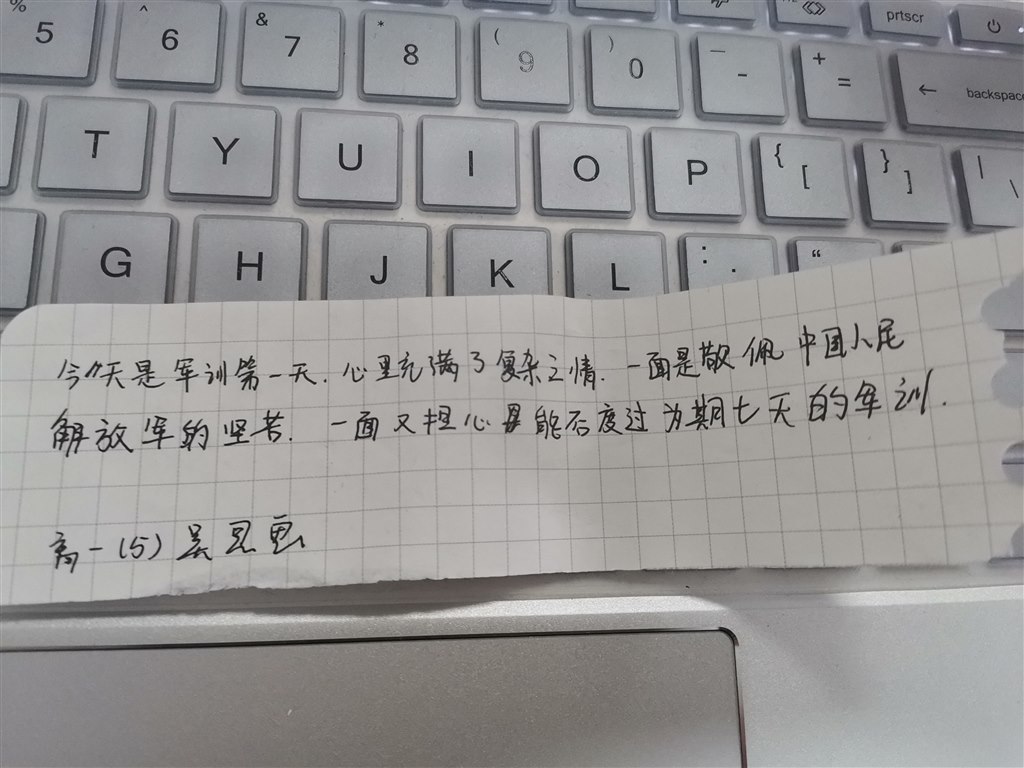 % 5
^ 6
& 7
* 8
( 9
) 0
— -
+ =
prtscr
← backspace
T Y U I O P { [ } ] | \
G H J K L : “
今天是军训第一天. 心里充满了复杂之情. 一面是敬佩中国人民
解放军的坚苦. 一面又担心是能否度过为期七天的军训.
高一(5) 吴